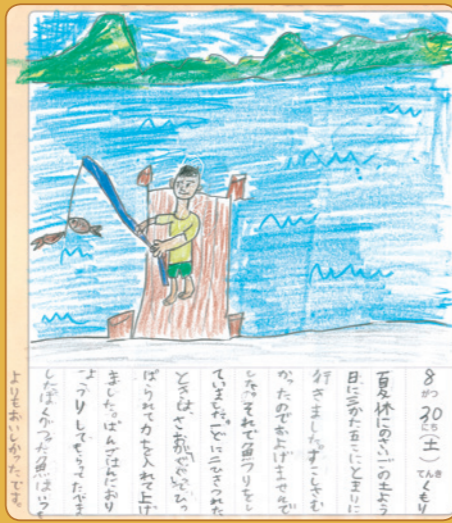 8がつ30にち(土)てんきくもり
夏休にのさいごの土よう
日に三かた五こにとまりに
行きました。すこしさむ
かったのでおよげませんで
した。それで魚つりをし
ていました。一どに二ひきつれた
ときは、さおがぐぐっとひっ
ぱられて力を入れて上げ
ました。ばんごはんにおり
ょうりしてもらってたべま
した。ぼくがつった魚はいつも
よりもおいしかったです。